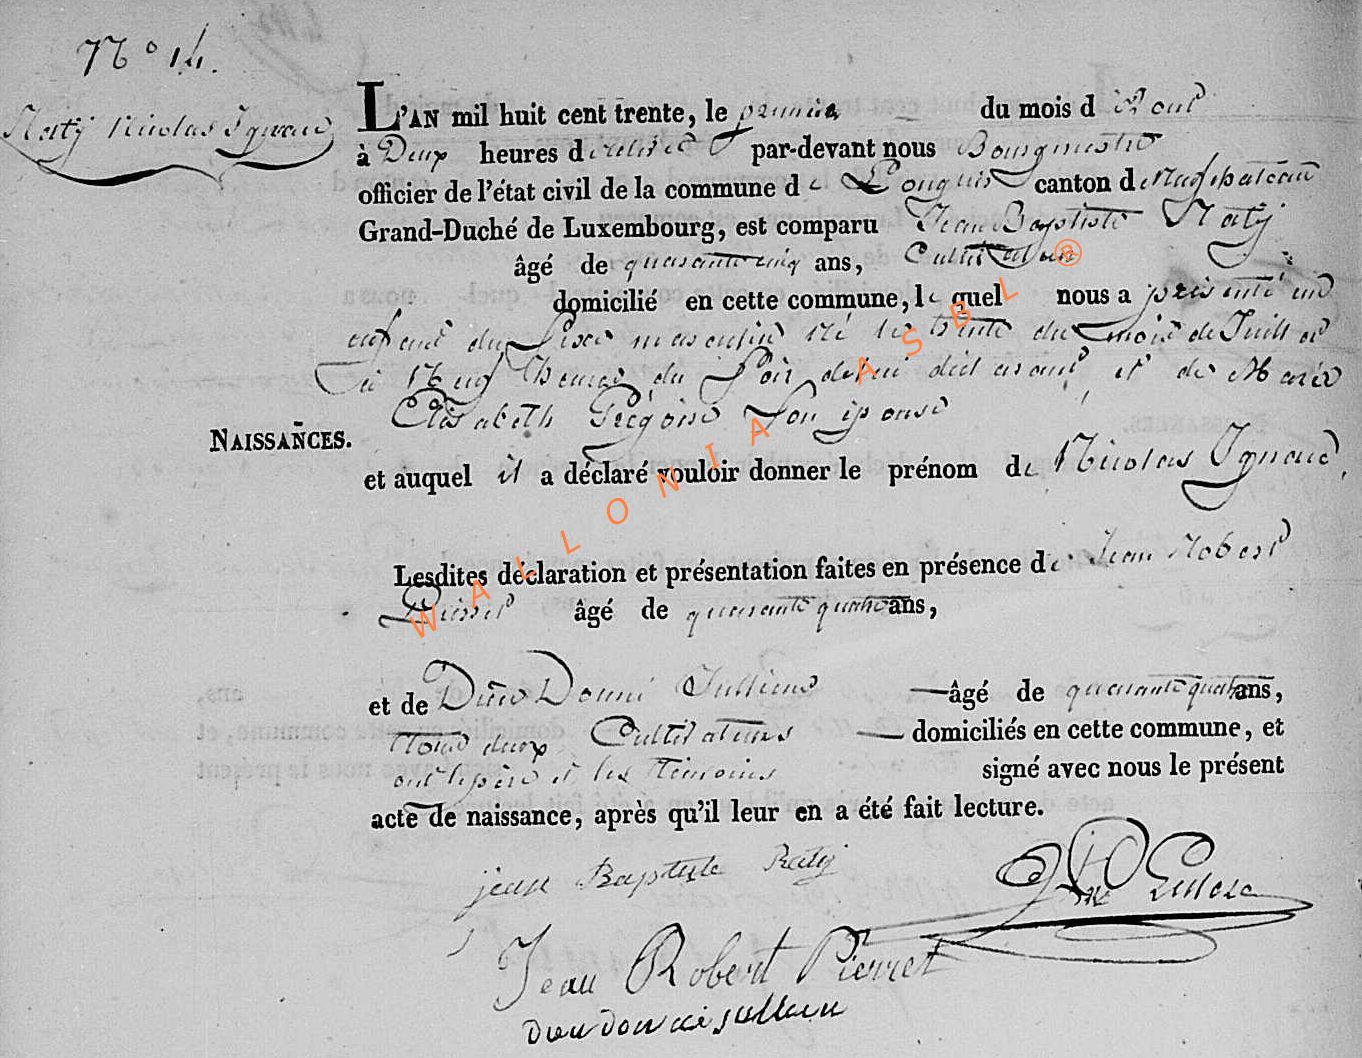 N° 14.
Naty Nicolas Ignace
L'AN mil huit cent trente, le premier du mois d'Aout
à Deux heures de relevée par-devant nous Bourgmestre
officier de l'état civil de la commune de Longlier canton de Neufchateau
Grand-Duché de Luxembourg, est comparu Jean Baptiste Naty
âgé de quarante cinq ans, Cultivateur
domicilié en cette commune, le quel nous a présenté un
enfant du Sexe masculin né le trente du mois de Juillet
à Neuf heures du Soir de lui déclarant, et de Marie
Elisabeth son épouse
NAISSANCES.
et auquel il a déclaré vouloir donner le prénom de Nicolas Ignace,
Lesdites déclaration et présentation faites en présence de Jean Robert
Pierret âgé de quarante quatre ans,
et de Dieu Donné Jullien âgé de quarante quatre ans,
tous deux Cultivateurs domiciliés en cette commune, et
ont le père et les témoins signé avec nous le présent
acte de naissance, après qu'il leur en a été fait lecture.
jean Baptiste Naty
Jean Robert Pierret
dieu donné jullien
WALLONIA ASBL ®